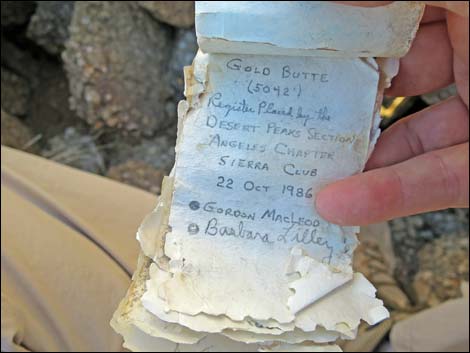 GOLD BUTTE
(5042')
Register Placed by the
DESERT PEAKS SECTION
ANGELES CHAPTER
SIERRA CLUB
22 OCT 1986
GORDON MACLEOD
Barbara Lilley